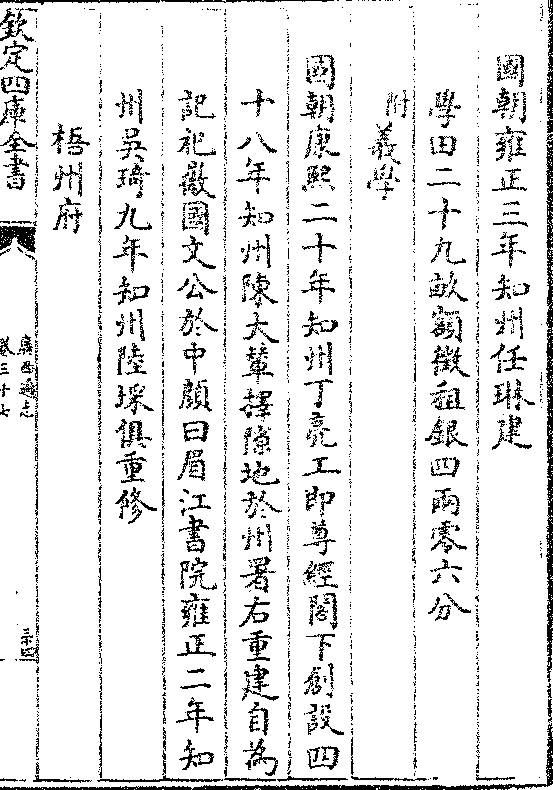 國朝雍正三年知州任琳建
學田二十九畝額徵租銀四兩零六分
附義學
國朝康熙二十年知州丁亮工即尊經閣下創設四
十八年知州陳大輦擇隙地於州署右重建自為
記祀徽國文公於中顏曰眉江書院雍正二年知
州吳琦九年知州陸綵俱重修
梧州府
欽定四庫全書
廣西通志
卷三十七